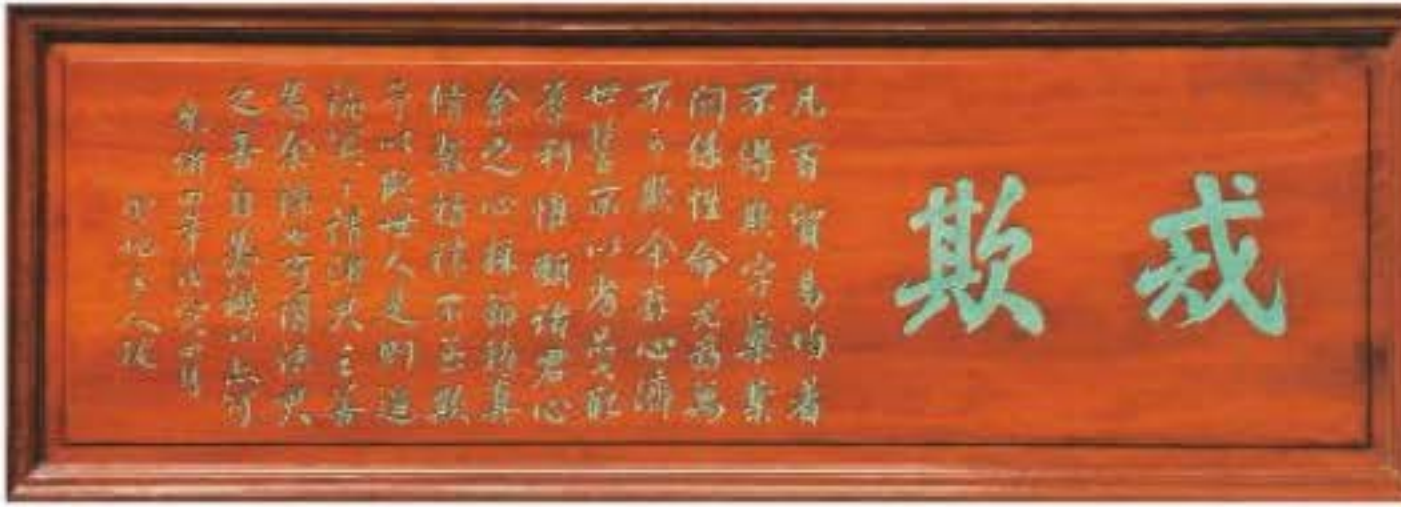 戒欺
凡百貿易均着
不得欺字藥業
關係性命尤為萬
不可欺余存心濟
世誓不以劣品弋取
厚利惟願諸君心
余之心採辦務真
修製務精不至欺
予以欺世人是則造
福冥冥謂諸君之善
為余謀也可謂諸君
之善自為謀也亦可
光緒四年戊寅四月
雪記主人跋